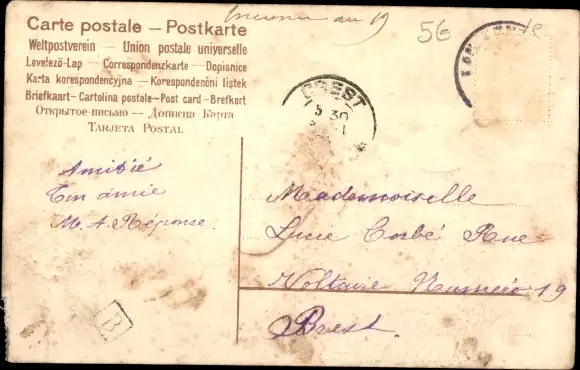 au 19
56
Carte postale — Postkarte
Weltpostverein — Union postale universelle
Levelező-Lap — Correspondenzkarte — Dopisnice
Karta korespondencyjna — Korespondenční listek
Briefkaart — Cartolina postale — Post card — Brefkort
Открытое-письмо — Дописна Карта
TARJETA POSTAL
BREST
5 30
Amitié
Ton amie
M. A. Réponse
Mademoiselle
Lucie Corbé Rue
Voltaire Numéro 19
Brest
B